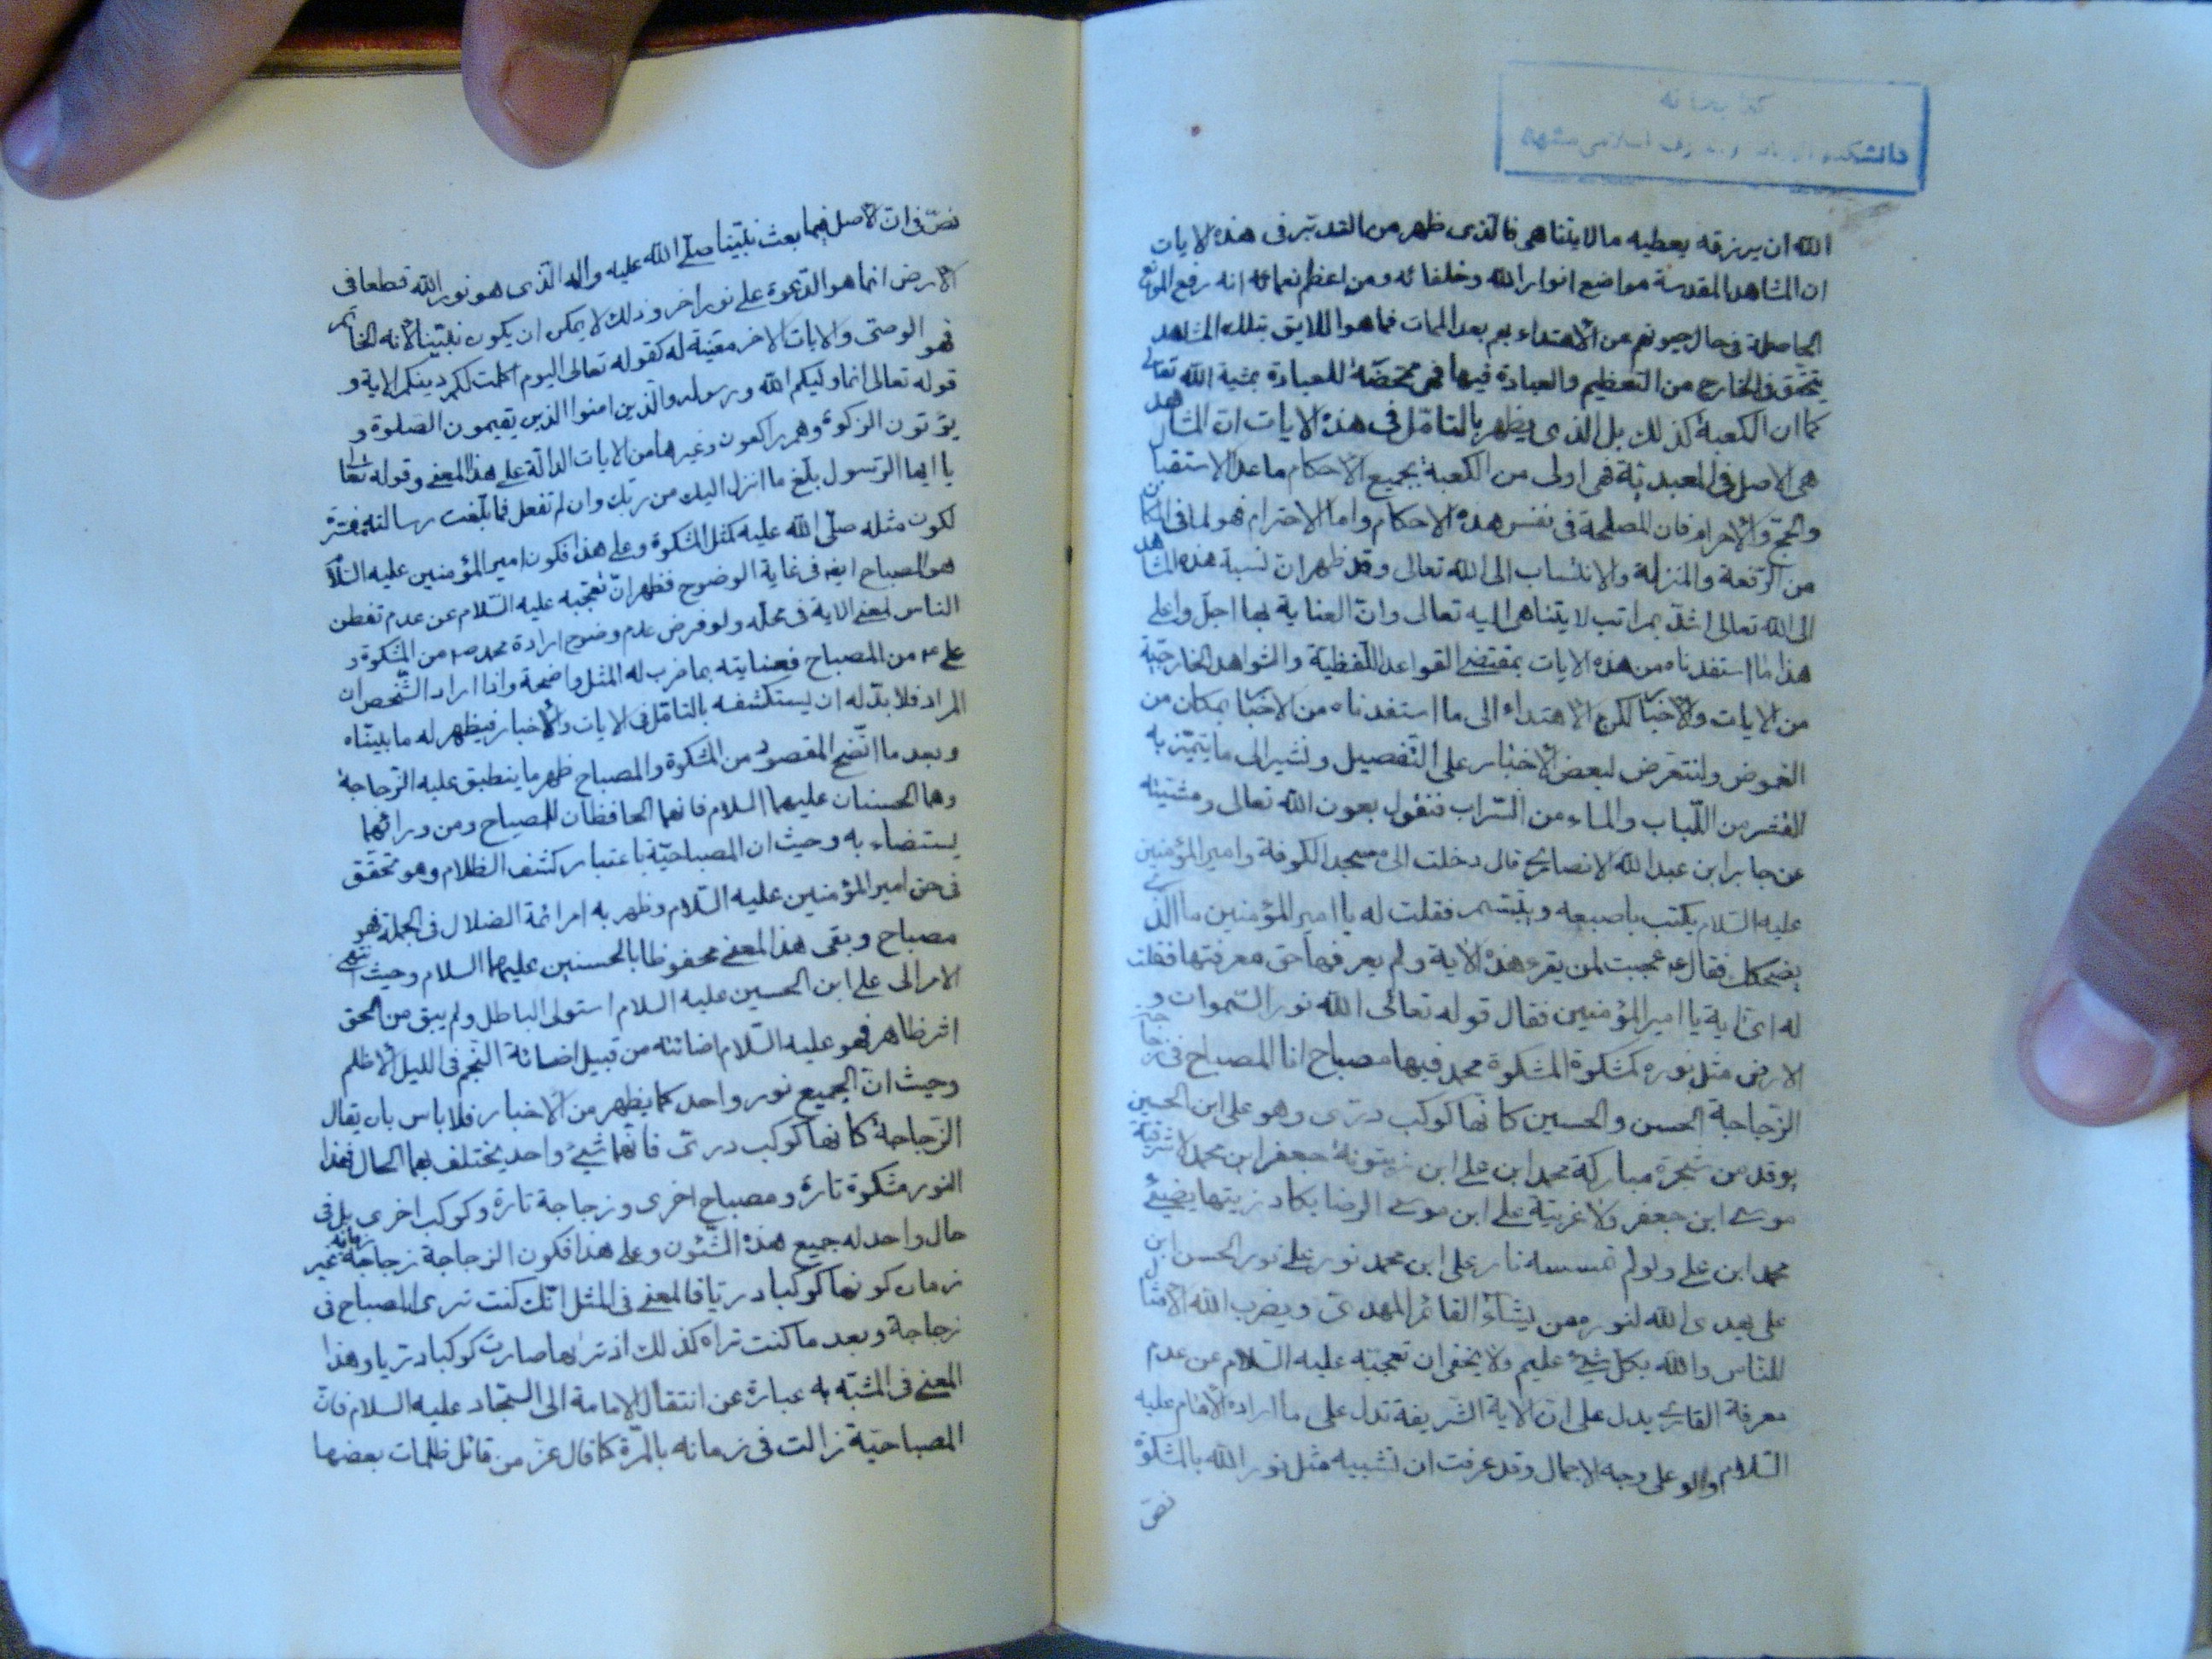 كتابخانه
دانشكده الهيات و معارف اسلامى مشهد
الله ان يرزقه يعطيه ما لا يتناهى فالذى ظهر من التدبّر فى هذه الايات
ان المشاهد المقدسة مواضع انوار الله وخلفائه ومن اعظم نعمائه انه رفع الموانع
الحاصلة فى حال حيوتهم عن الاهتداء بهم بعد الممات فما هو اللايق بتلك المشاهد
يتحقق فى الخارج من التعظيم والعبادة فيها فهى متمحّضة للعبادة بمشية الله تعالى
كما ان الكعبة كذلك بل الذى يظهر بالتامّل فى هذه الايات ان المشاهد
هى الاصل فى المعبديّة فهى اولى من الكعبة بجميع الاحكام ما عدا الاستقبال
والحج والاحرام فان المصلحة فى نفس هذه الاحكام واما الاحترام فهو لما فى المكان
من الرّفعة والمنزلة والانتساب الى الله تعالى وقد ظهر ان نسبة هذه المشاهد
الى الله تعالى اشدّ بمراتب لا يتناهى اليه تعالى وانّ العناية بها اجلّ واعلى
هذا ما استفدناه من هذه الايات بمقتضى القواعد اللّفظيّة والشواهد الخارجيّة
من الايات والاخبار لكن الاهتداء الى ما استفدناه من الاخبار بمكان من
الغموض ولنتعرض لبعض الاخبار على التّفصيل ونشير الى ما يتميّز به
القشر من اللّباب والماء من السّراب فنقول بعون الله تعالى ومشيته
عن جابر ابن عبد الله الانصارى قال دخلت الى مسجد الكوفة وامير المؤمنين
عليه السّلام يكتب باصبعه ويتبسّم فقلت له يا امير المؤمنين ما الذى
يضحكك فقال ع عجبت لمن يقرء هذه الاية ولم يعرفها حق معرفتها فقلت
له اىّ اية يا امير المؤمنين فقال قوله تعالى الله نور السّموات و
الارض مثل نوره كمشكوة المشكوة محمد فيها مصباح انا المصباح فى زجاجة
الزّجاجة الحسن والحسين كانّها كوكب درّى وهو على ابن الحسين
يوقد من شجرة مباركة محمد ابن على ابن زيتونة جعفر ابن محمد لا شرقيّة
موسى ابن جعفر ولا غربيّة على ابن موسى الرضا يكاد زيتها يضيئ
محمد ابن على ولو لم تمسسه نار على ابن محمد نور على نور الحسن ابن
على يهدى الله لنوره من يشاء القائم المهدىّ ويضرب الله الامثال
للنّاس والله بكل شئ عليم ولا يخفى ان تعجبّه عليه السّلام عن عدم
معرفة القارى يدل على ان الاية الشريفة تدل على ما اراده الامام عليه
السّلام ولو على وجه الاجمال وقد عرفت ان تشبيه مثل نور الله بالمشكوة
نصّ
نصّ فى انّ الاصل فيما بعث نبيّنا صلّى الله عليه واله الذى هو نور الله قطعا فى
الارض انما هو الدّعوة على نور اخر وذلك لا يمكن ان يكون نبيّنا لانه الخاتم
فهو الوصىّ والايات الاخر معيّنة له كقوله تعالى اليوم اكملت لكم دينكم الاية و
قوله تعالى انما وليكم الله ورسوله والذين امنوا الذين يقيمون الصّلوة و
يؤتون الزكوة وهم راكعون وغيرها من الايات الدالّة على هذا المعنى وقوله تعالى
يا ايها الرّسول بلّغ ما انزل اليك من ربّك وان لم تفعل فما بلّغت رسالته مفسّرة
لكون مثله صلّى الله عليه كمثل المشكوة وعلى هذا فكون امير المؤمنين عليه السّلام
هو المصباح ايضا فى غاية الوضوح فظهر انّ تعجّبه عليه السّلام عن عدم تفطن
الناس لمعنى الاية فى محلّه ولو فرض عدم وضوح ارادة محمد ص من المشكوة و
على ع من المصباح فعنايته بما ضرب له المثل واضحة واذا اراد الشّخص ان
المراد فلا بدّ له ان يستكشفه بالتامّل فى الايات والاخبار فيظهر له ما بيّناه
وبعد ما اتّضح المقصود من المشكوة والمصباح ظهر ما ينطبق عليه الزّجاجة
وهما الحسنان عليهما السلام فانهما الحافظان للمصباح ومن ورائهما
يستضاء به وحيث ان المصباحيّة باعتبار كشف الظلام وهو متحقق
فى حق امير المؤمنين عليه السّلام وظهر به امر ائمة الضلال فى الجملة فهو
مصباح وبقى هذا المعنى محفوظا بالحسنين عليهما السلام وحيث انتهى
الامر الى على ابن الحسين عليه السلام استولى الباطل ولم يبق من الحق
اثر ظاهر فهو عليه السّلام اضائته من قبيل اضائة النجم فى الليل الاظلم
وحيث انّ الجميع نور واحد كما يظهر من الاخبار فلا باس بان يقال
الزّجاجة كانها كوكب درىّ فانّهما شئ واحد يختلف بهما الحال فهذا
النور مشكوة تارة ومصباح اخرى وزجاجة تارة وكوكب اخرى بل فى
حال واحد له جميع هذه الشّئون وعلى هذا فكون الزجاجة زجاجة زمانه غير
زمان كونها كوكبا دريّا فالمعنى فى المثل انّك كنت ترى المصباح فى
زجاجة وبعد ما كنت تراه كذلك اذ ترٰيها صارت كوكبا دريا وهذا
المعنى فى المشبّه به عبارة عن انتقال الامامة الى السّجّاد عليه السلام فانّ
المصباحيّة زالت فى زمانه بالمرّة كما قال عزّ من قائل ظلمات بعضها